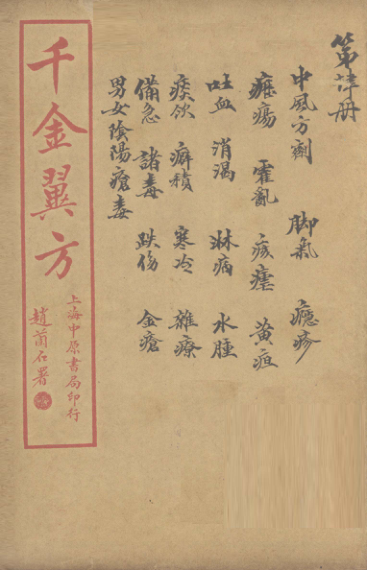 第廿册
中風方劑 脚氣 癮疹
瘍 霍亂 痎瘧 黄疸
吐血 消渴 淋病 水腫
痰飲 癖積 寒冷 雜療
備急 諸毒 跌傷 金瘡
男女陰陽瘡毒
千金翼方
上海中原書局印行
趙石署